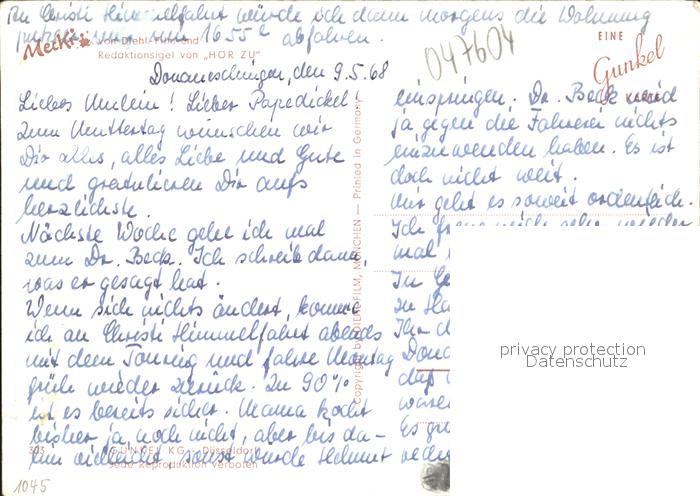 An Christi Himmelfahrt würde ich dann morgens die Wohnung
um 1655 abfahren.
Mecki
von Diehl-Film und
Redaktionsigel von „HÖR ZU"
047604
EINE
Gunkel
Donaueschingen, den 9.5.68
Liebes Mulein! Lieber Papedickel!
Zum Muttertag wünschen wir
Dir alles, alles Liebe und Gute
und gratulieren Dir aufs
herzlichste.
Nächste Woche gehe ich mal
zum Dr. Beck. Ich schreib dann,
was er gesagt hat.
Wenn sich nichts ändert, komme
ich an Christi Himmelfahrt abends
mit dem Touring und fahre Montag
früh wieder zurück. Zu 90%
ist es bereits sicher. Mama kocht
bisher ja noch nicht, aber bis da-
hin vielleicht, sonst würde Helmut
Copyright by DIEHL-FILM, MÜNCHEN — Printed in Germany
einspringen. Dr. Beck wird
ja gegen die Fahrerei nichts
einzuwenden haben. Es ist
doch nicht weit.
Mir geht es soweit ordentlich.
Ich freue mich sehr, wieder
mal
In
zu
Ihr
daß
waren
Es
GUNKEL KG - Düsseldorf
Jede Reproduktion verboten
1045
privacy protection
Datenschutz